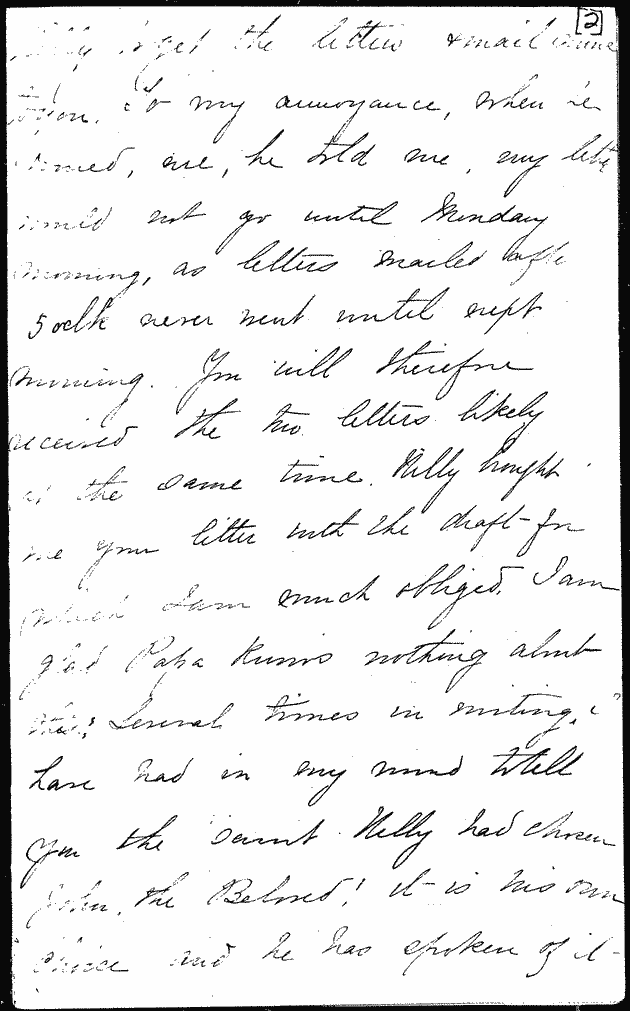 [2]
Willy to get the letters & mail mine
to you. To my annoyance, when he
joined, me, he told me, my letter
would not go until Monday
morning, as letters mailed after
5 oclk never went until next
morning. You will therefore
received the two letters likely
at the same time. Willy bought
me your letter with the draft for
which I am much obliged. I am
glad Papa knows nothing about
this; Several times in writing, I
have had in my mind to tell
you the saint Willy had chosen
John, the Beloved! it is his own
choice and he has spoken of it